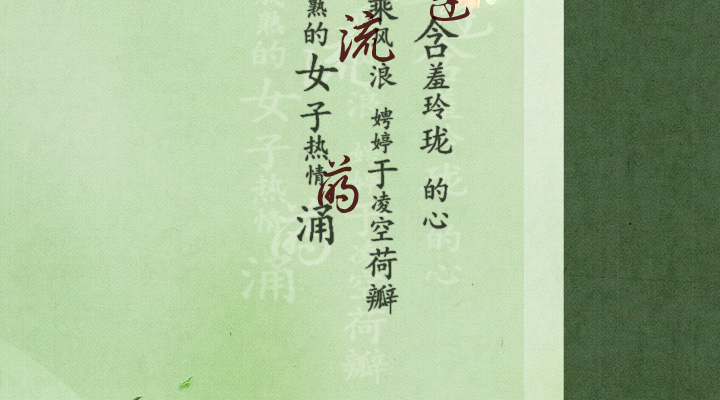 含羞玲珑 的心
乘风浪 娉婷于凌空荷瓣
流
熟的女子热情涌